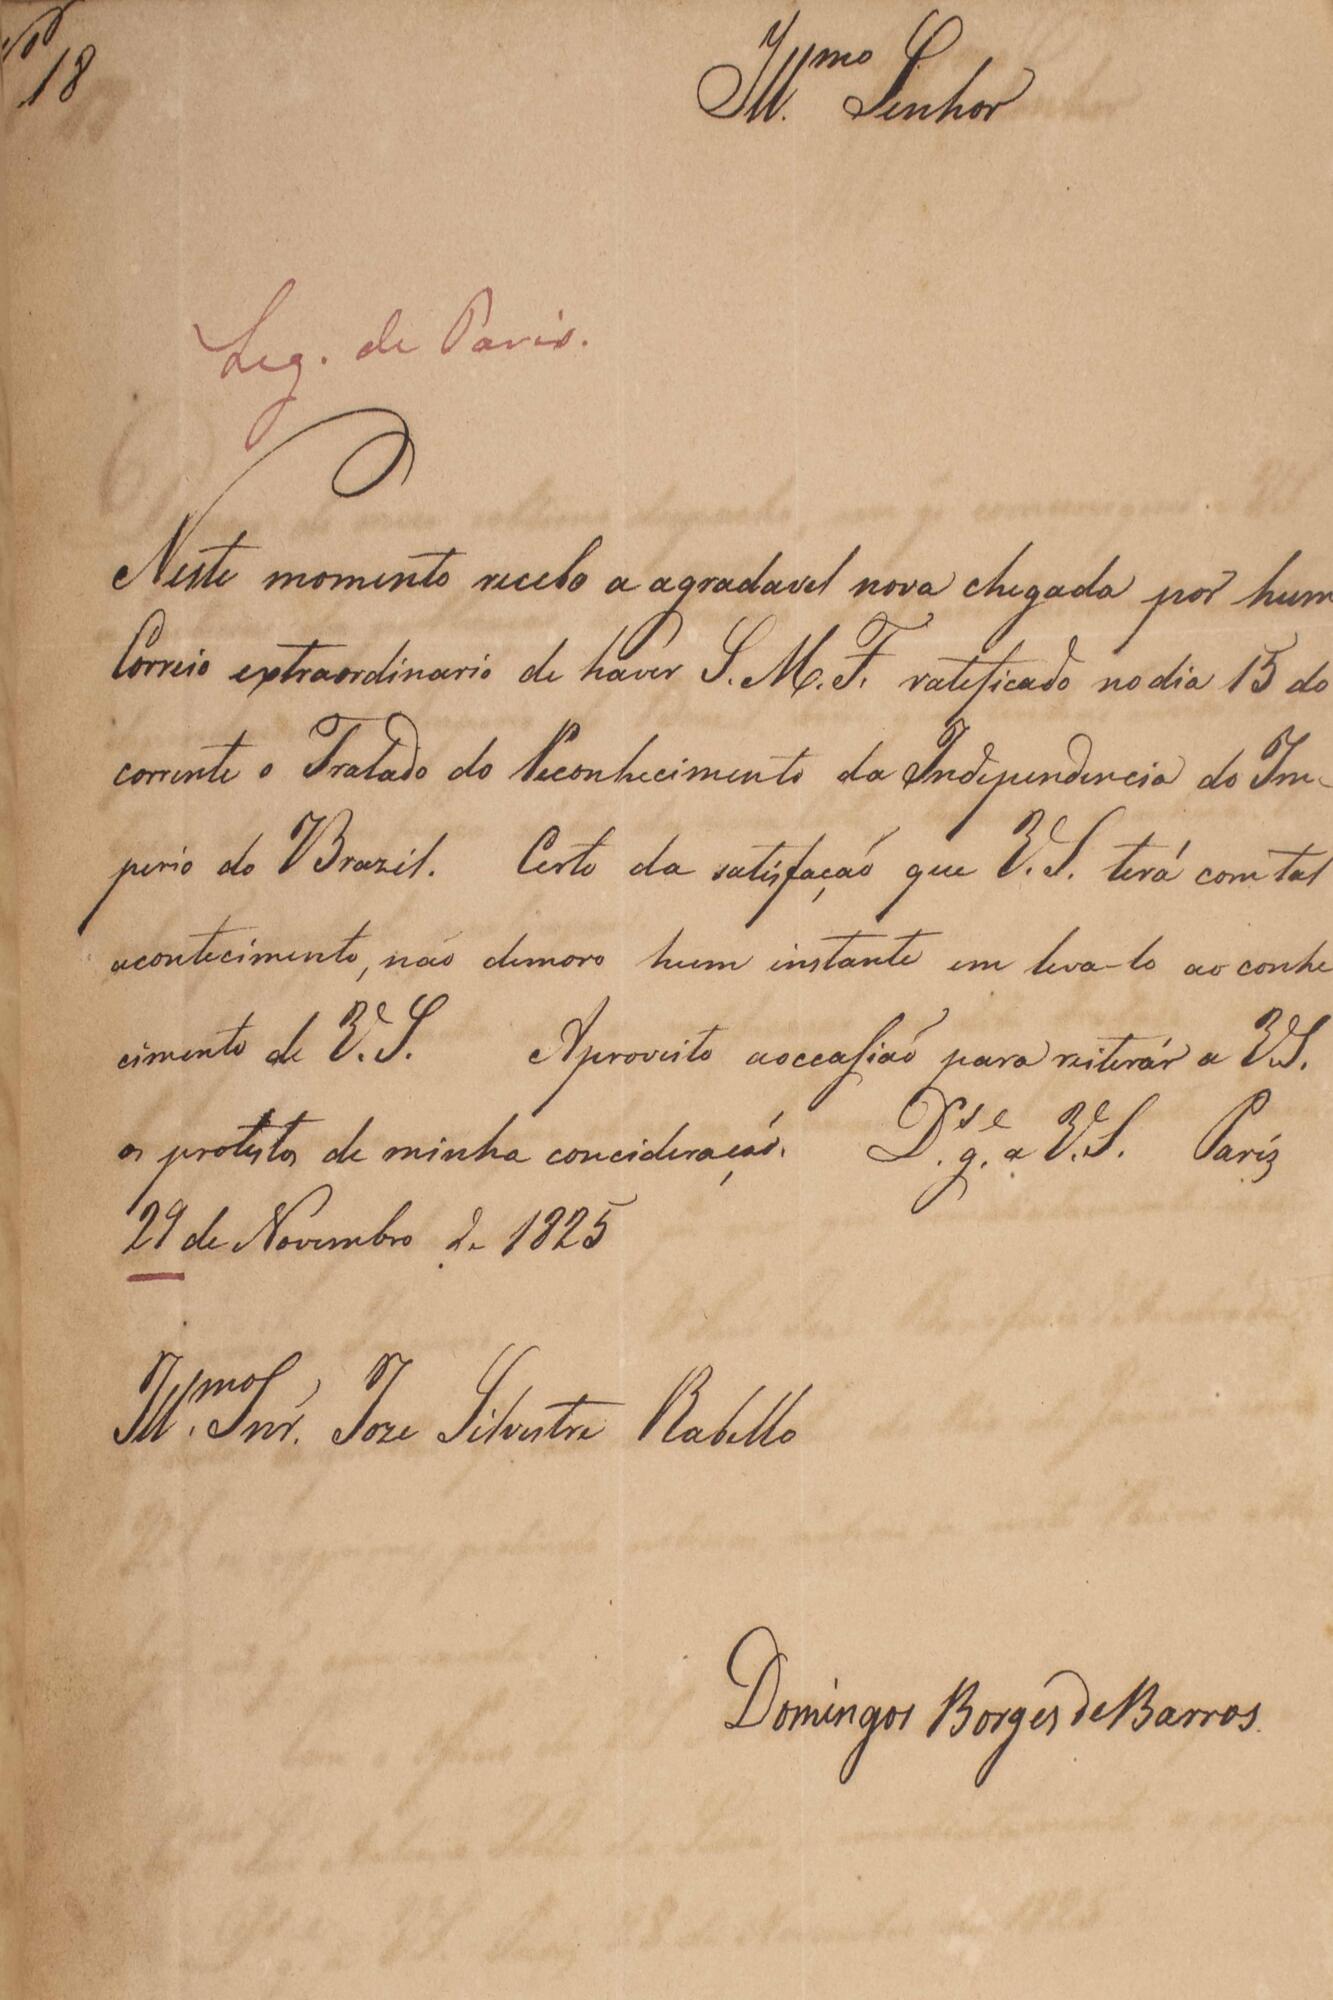 Nº 18
Ill.mo Senhor
Leg. de Paris.
Neste momento recebo a agradavel nova chegada por hum
Correio extraordinario de haver S. M. F. ratificado no dia 15 do
corrente o Tratado do Reconhecimento da Independencia do Im-
perio do Brazil. Certo da satisfação que V. S. terá com tal
acontecimento, não demoro hum instante em leva-lo ao conhe
cimento de V. S. Aproveito a occasião para reiterár a V. S.
os protestos de minha concideração. D.s g.e a V. S. Pariz
29 de Novembro de 1825
Ill.mo Snr. Joze Silvestre Rabello
Domingos Borges de Barros.